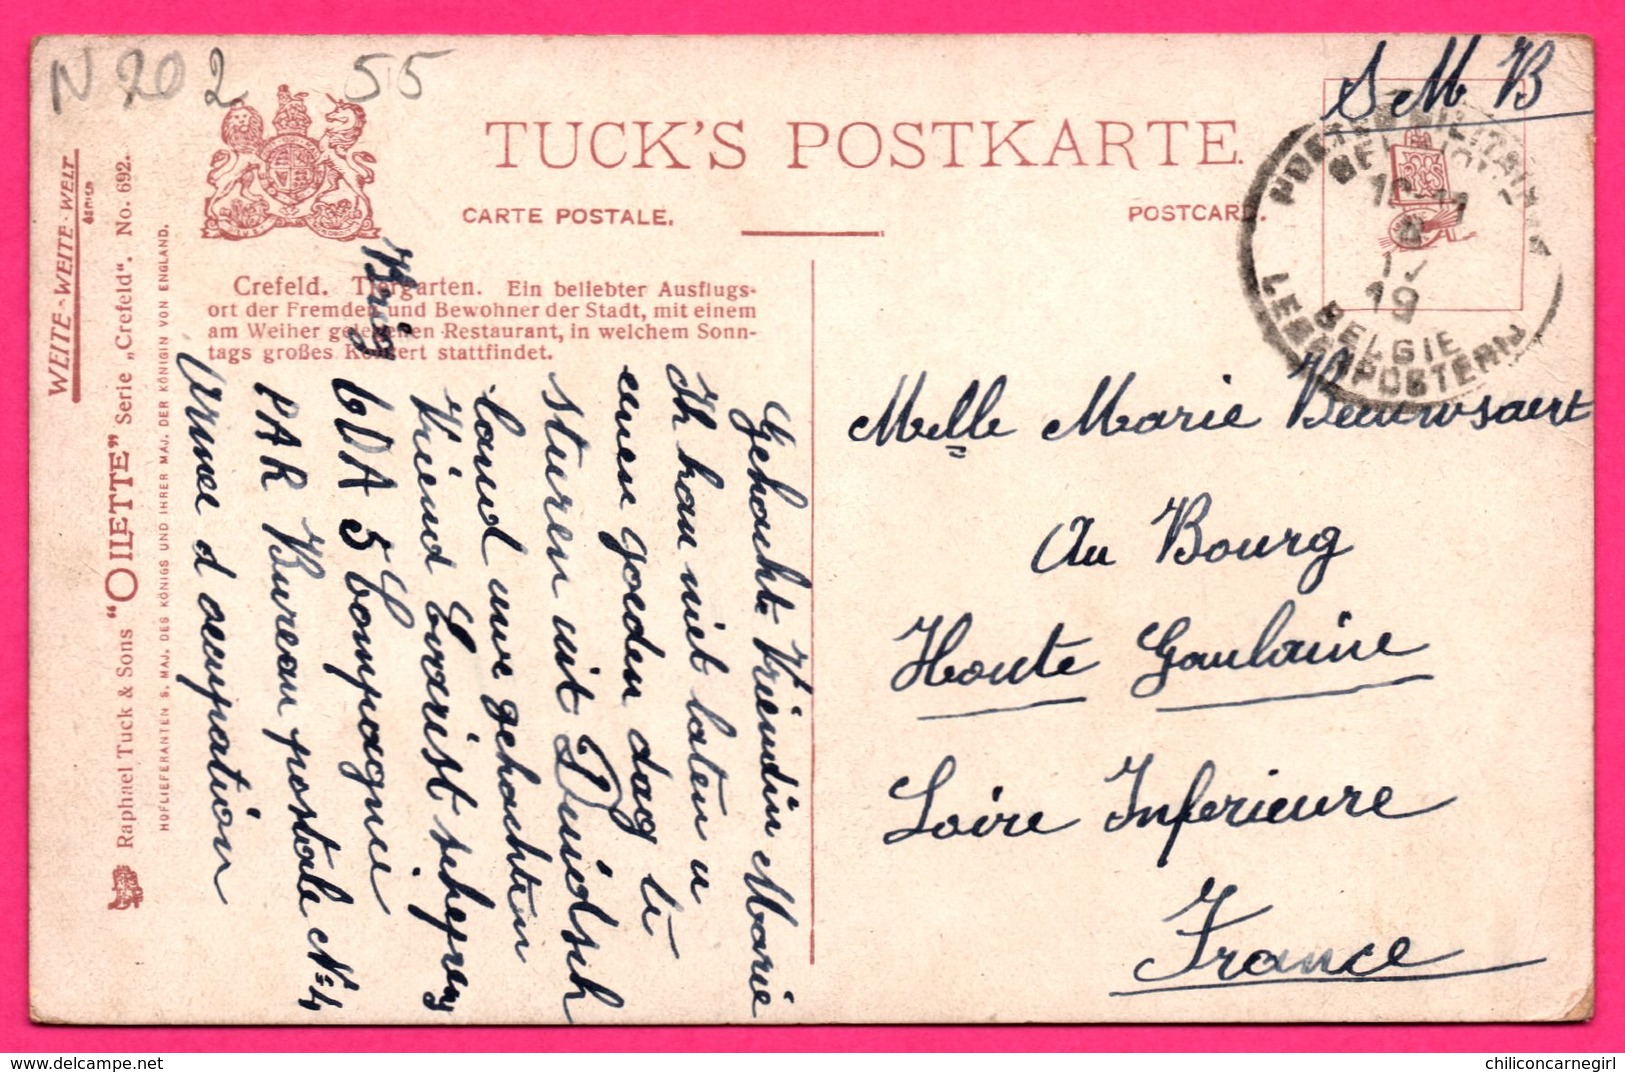 N 202 55
S M B
TUCK'S POSTKARTE.
CARTE POSTALE.
POSTCARD.
Crefeld. Tiergarten. Ein beliebter Ausflugs-
ort der Fremden und Bewohner der Stadt, mit einem
am Weiher gelegenen Restaurant, in welchem Sonn-
tags großes Konzert stattfindet.
WEITE-WEITE-WELT
SERIEN
Raphael Tuck & Sons "OILETTE" Serie „Crefeld". No. 692.
HOFLIEFERANTEN S. MAJ. DES KÖNIGS UND IHRER MAJ. DER KÖNIGIN VON ENGLAND.
BELGIE
LEGERPOSTERIJ
19
Melle Marie Beauwsaert
Au Bourg
Houte Goulaine
Loire Inferieure
France
Gehachte Vriendin Marie
Ik kan niet laten u
eenen goeden dag te
sturen uit Duidsch
land uwe gehachten
Vriend Evarist
6 DA 5 Compagnie
PAR Bureau postale No 4
Armee d occupation
chiliconcarnegirl